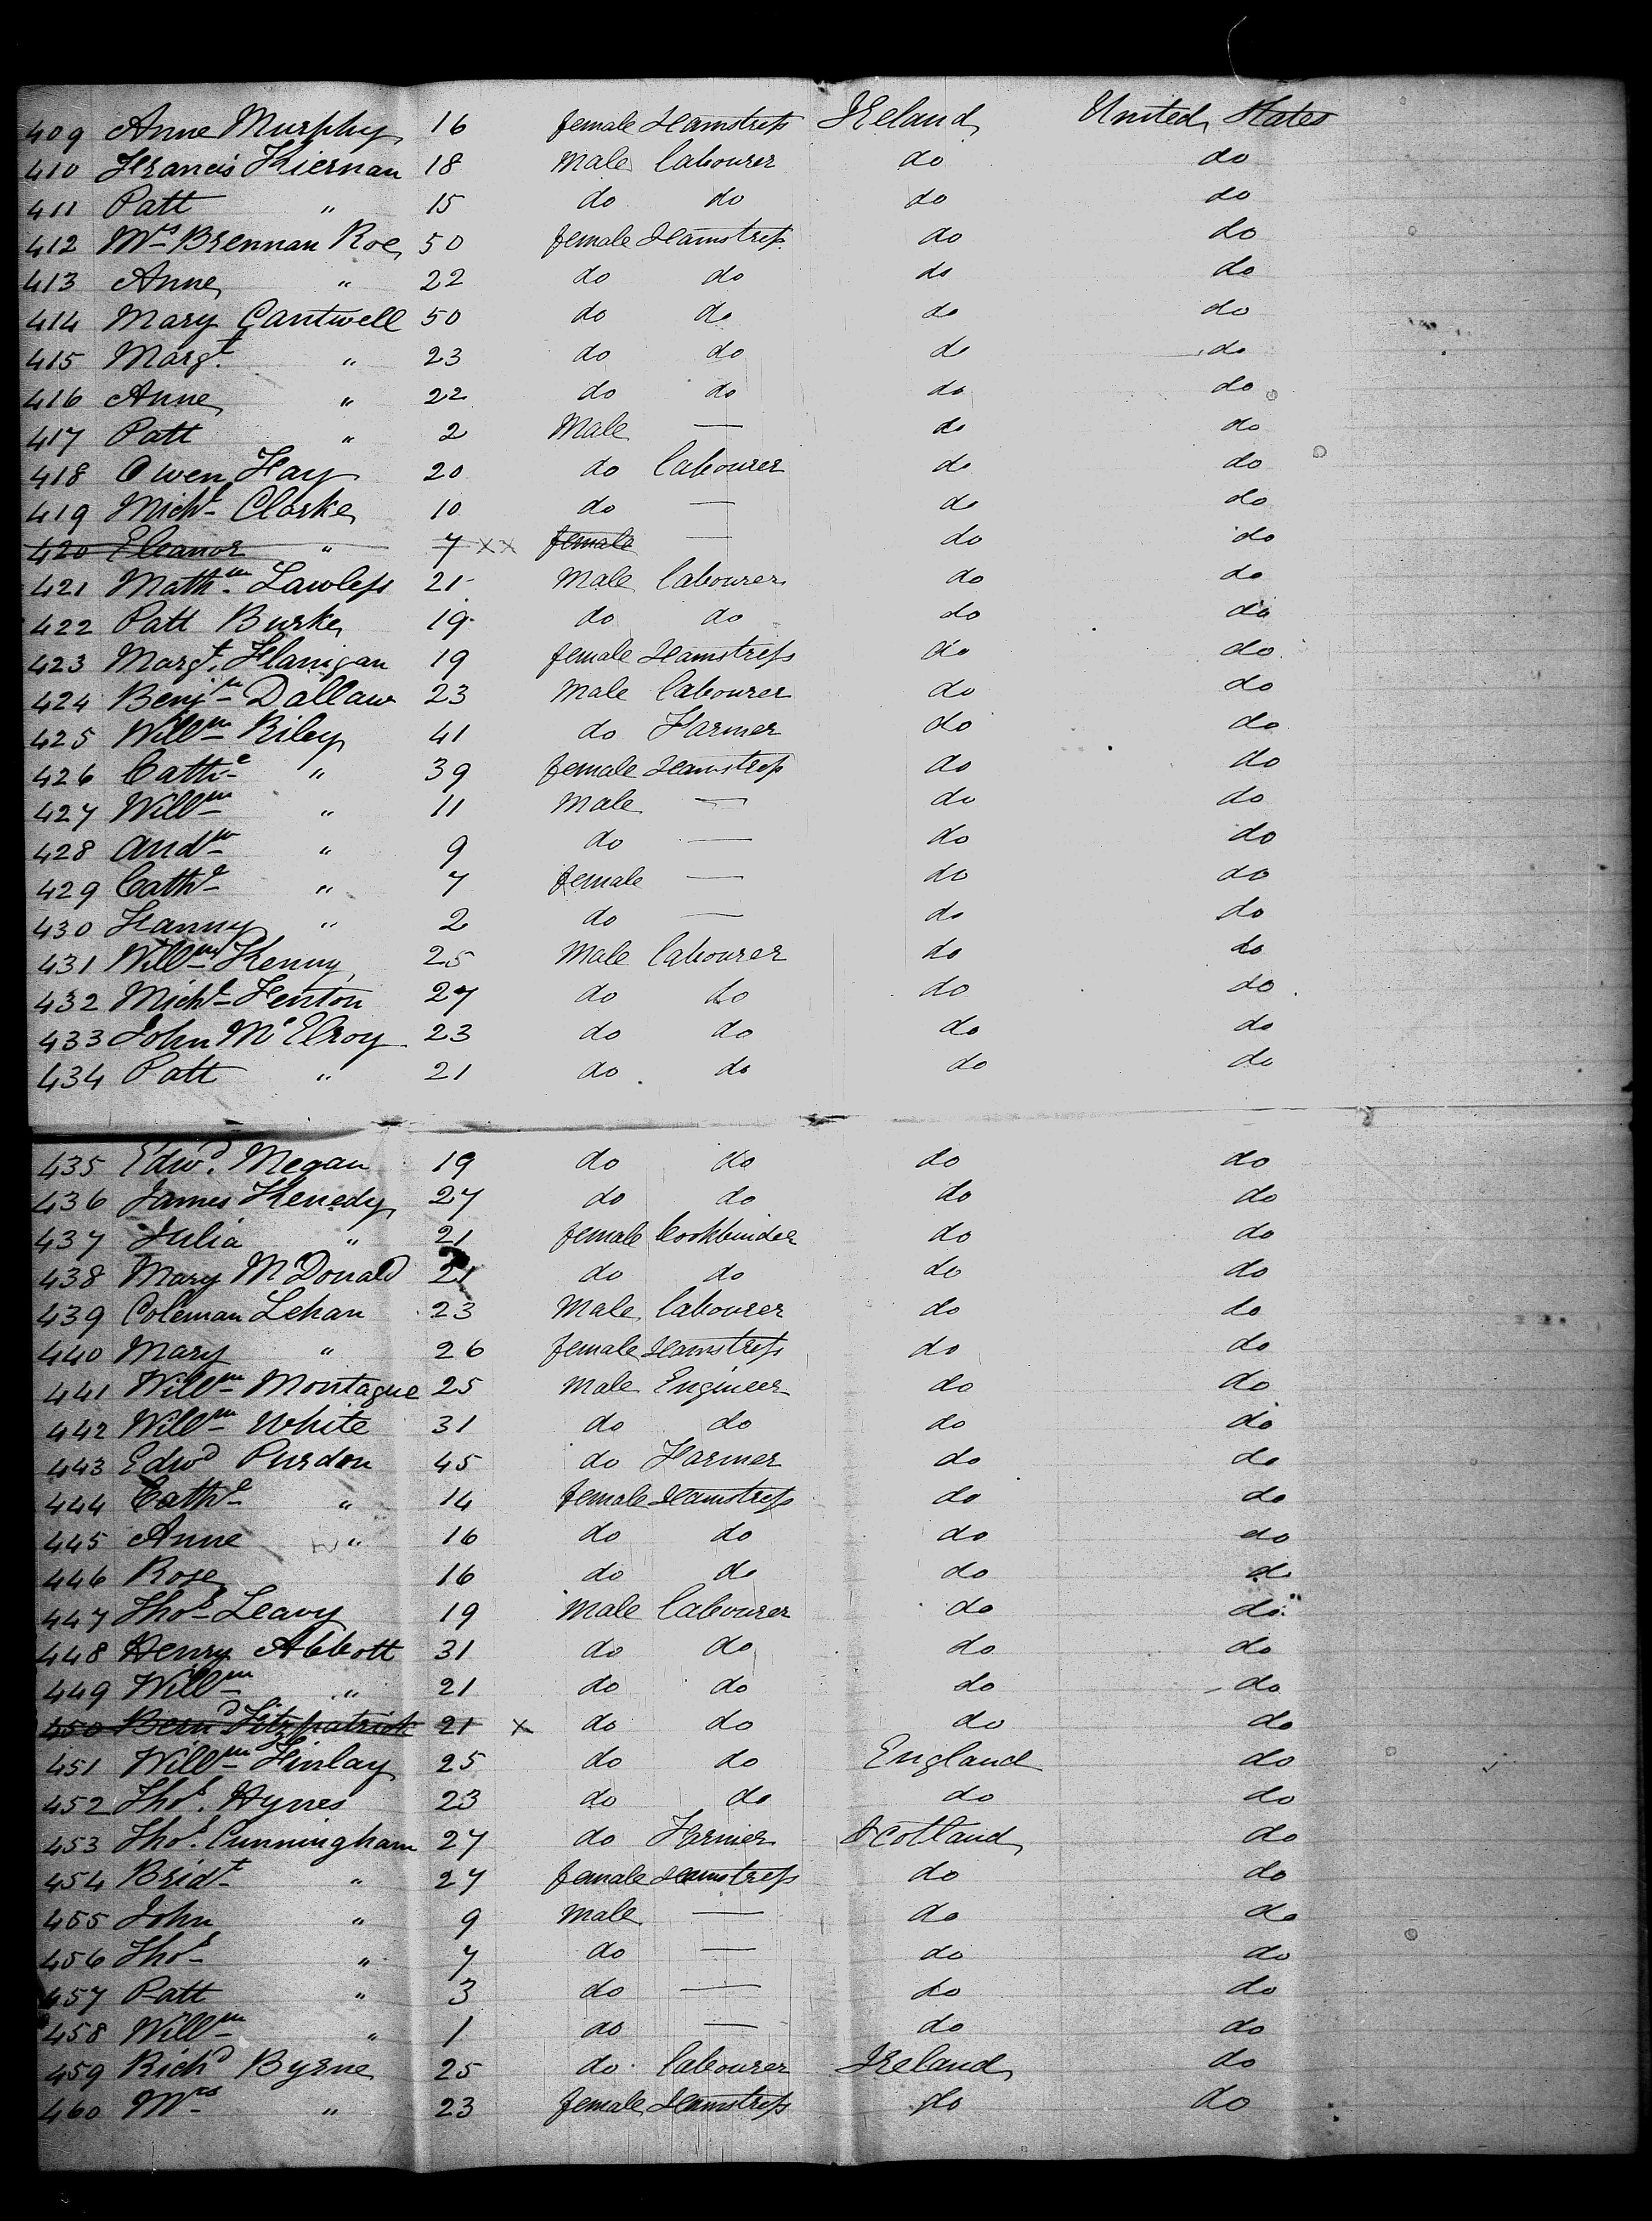 409 Anne Murphy 16 female Seamstress Ireland United States
410 Francis Kiernan 18 Male labourer do do
411 Patt " 15 do do do do
412 Mrs Brennan Roe 50 female Seamstress do do
413 Anne " 22 do do do do
414 Mary Cantwell 50 do do do do
415 Margt. " 23 do do do do
416 Anne " 22 do do do do
417 Patt " 2 Male — do do
418 Owen Fay 20 do labourer do do
419 Michl Clarke 10 do — do do
420 Eleanor " 7 xx female — do do
421 Mathw. Lawless 21 Male labourer do do
422 Patt Burke 19 do do do do
423 Margt. Flanigan 19 female Seamstress do do
424 Benjn Dallaw 23 Male labourer do do
425 Willm Riley 41 do Farmer do do
426 Cathe " 39 female Seamstress do do
427 Willm " 11 Male — do do
428 Andw " 9 do — do do
429 Cathe " 7 female — do do
430 Fanny " 2 do — do do
431 Willm Kenny 25 Male labourer do do
432 Michl Fenton 27 do do do do
433 John McElroy 23 do do do do
434 Patt " 21 do do do do
435 Edwd. Megan 19 do do do do
436 James Kenedy 27 do do do do
437 Julia " 21 female bookbinder do do
438 Mary McDonald 21 do do do do
439 Coleman Lehan 23 Male labourer do do
440 Mary " 26 female Seamstress do do
441 Willm Montague 25 Male Engineer do do
442 Willm White 31 do do do do
443 Edwd Purdon 45 do Farmer do do
444 Cathe " 14 female Seamstress do do
445 Anne " 16 do do do do
446 Rose 16 do do do do
447 Thos Leavy 19 Male labourer do do
448 Henry Abbott 31 do do do do
449 Willm " 21 do do do do
450 Bernd Fitzpatrick 21 x do do do do
451 Willm Finlay 25 do do England do
452 Thos. Hynes 23 do do do do
453 Thos. Cunningham 27 do Farmer Scotland do
454 Bridt " 27 female Seamstress do do
455 John " 9 Male — do do
456 Thos " 7 do — do do
457 Patt " 3 do — do do
458 Willm " 1 do — do do
459 Richd Byrne 25 do labourer Ireland do
460 Mrs " 23 female Seamstress do do